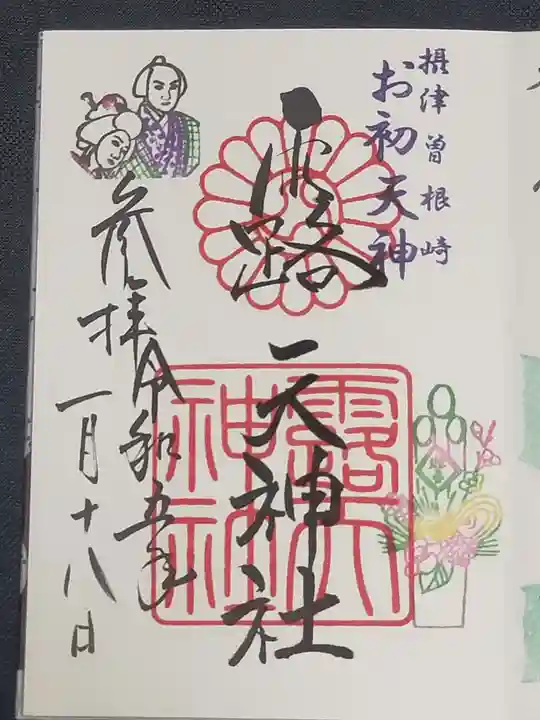 摂津曽根崎
お初天神
露
天神社
露天神社
参拝令和五年
一月十八日